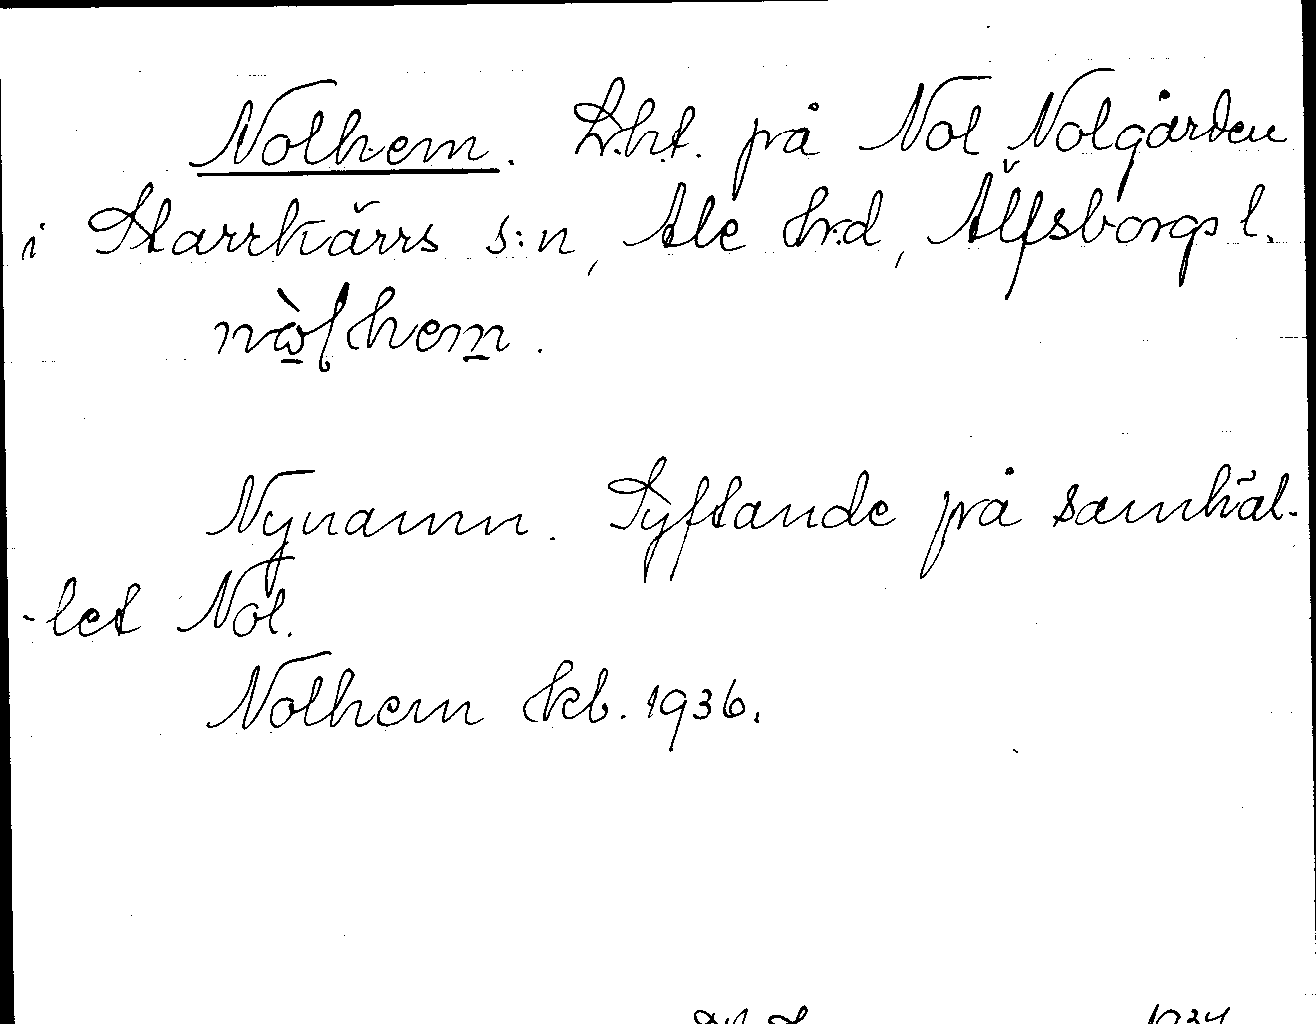 Nolhem. Lht. på Nol Nolgården
i Starrkärrs s:n, Ale hrd, Älfsborgs l.
nòlhem.
Nynamn. Syftande på samhäl-
-let Nol.
Nolhem kb. 1936.